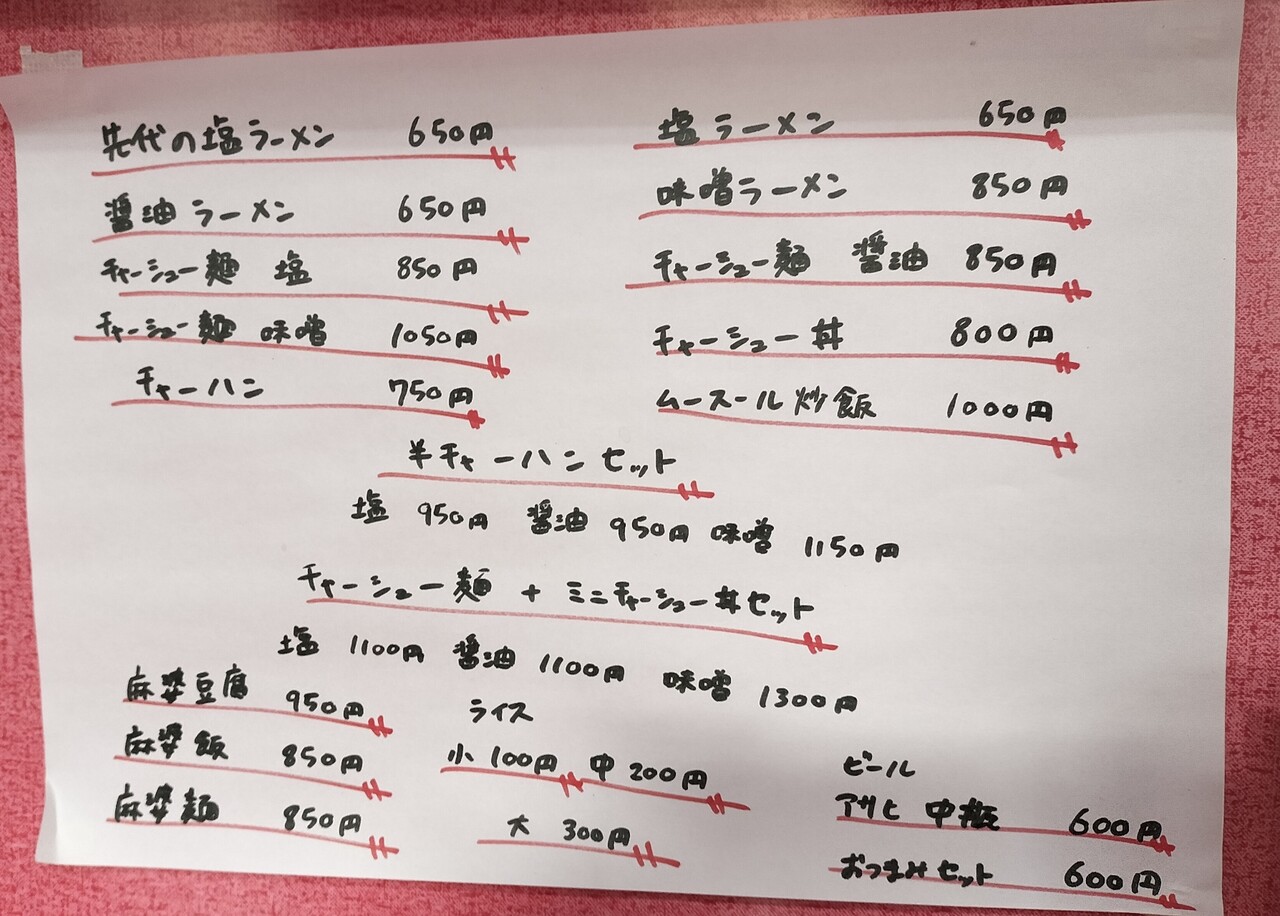 先代の塩ラーメン 650円
塩ラーメン 650円
醤油ラーメン 650円
味噌ラーメン 850円
チャーシュー麺 塩 850円
チャーシュー麺 醤油 850円
チャーシュー麺 味噌 1050円
チャーシュー丼 800円
チャーハン 750円
ムースール炒飯 1000円
半チャーハンセット
塩 950円 醤油 950円 味噌 1150円
チャーシュー麺 + ミニチャーシュー丼セット
塩 1100円 醤油 1100円 味噌 1300円
麻婆豆腐 950円
麻婆飯 850円
麻婆麺 850円
ライス
小 100円 中 200円
大 300円
ビール
アサヒ 中瓶 600円
おつまみセット 600円